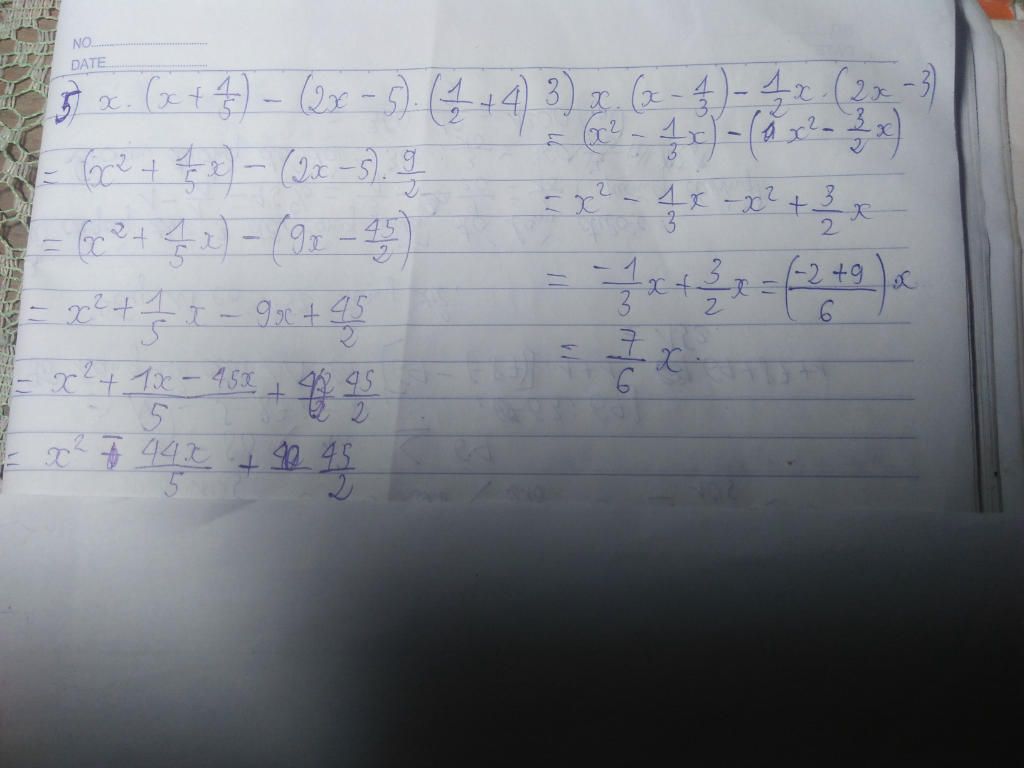 NO
DATE
5) x . (x + 1/5) - (2x - 5) . (1/2 + 4)
= (x² + 1/5 x) - (2x - 5) . 9/2
= (x² + 1/5 x) - (9x - 45/2)
= x² + 1/5 x - 9x + 45/2
= x² + (1x - 45x)/5 + 45/2
= x² - 44x/5 + 45/2
3) x . (x - 1/3) - 1/2 x . (2x - 3)
= (x² - 1/3 x) - (1x² - 3/2 x)
= x² - 1/3 x - x² + 3/2 x
= -1/3 x + 3/2 x = ((-2 + 9)/6) x
= 7/6 x.